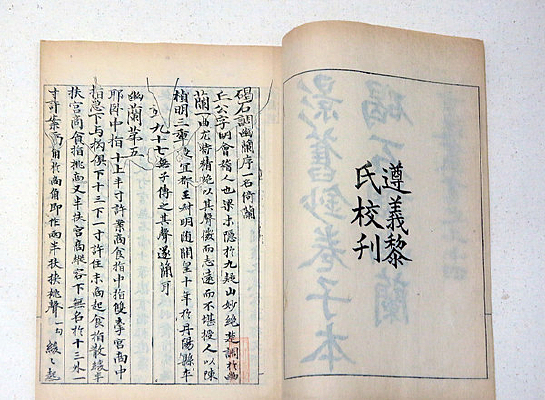 遵義黎
氏校刊
碣石調幽蘭序一名倚蘭
丘公字明會稽人也梁末隱於九疑山妙絕楚調於幽
蘭一曲尤特精絕以其聲微而志遠而不堪授人以陳
禎明三年授宜都王叔明隨開皇十年於丹陽縣卒
年九十七無子傳之其聲遂簡耳
幽蘭第五
耶臥中指十上半寸許案商食指中指雙牽宮商中
指急下与拘俱下十三下一寸許住末商起食指散緩半
扶宮商食指挑商又半扶宮商縱容下無名於十三外一
寸許案商角於商角即作兩半扶挾挑聲一句緩々起